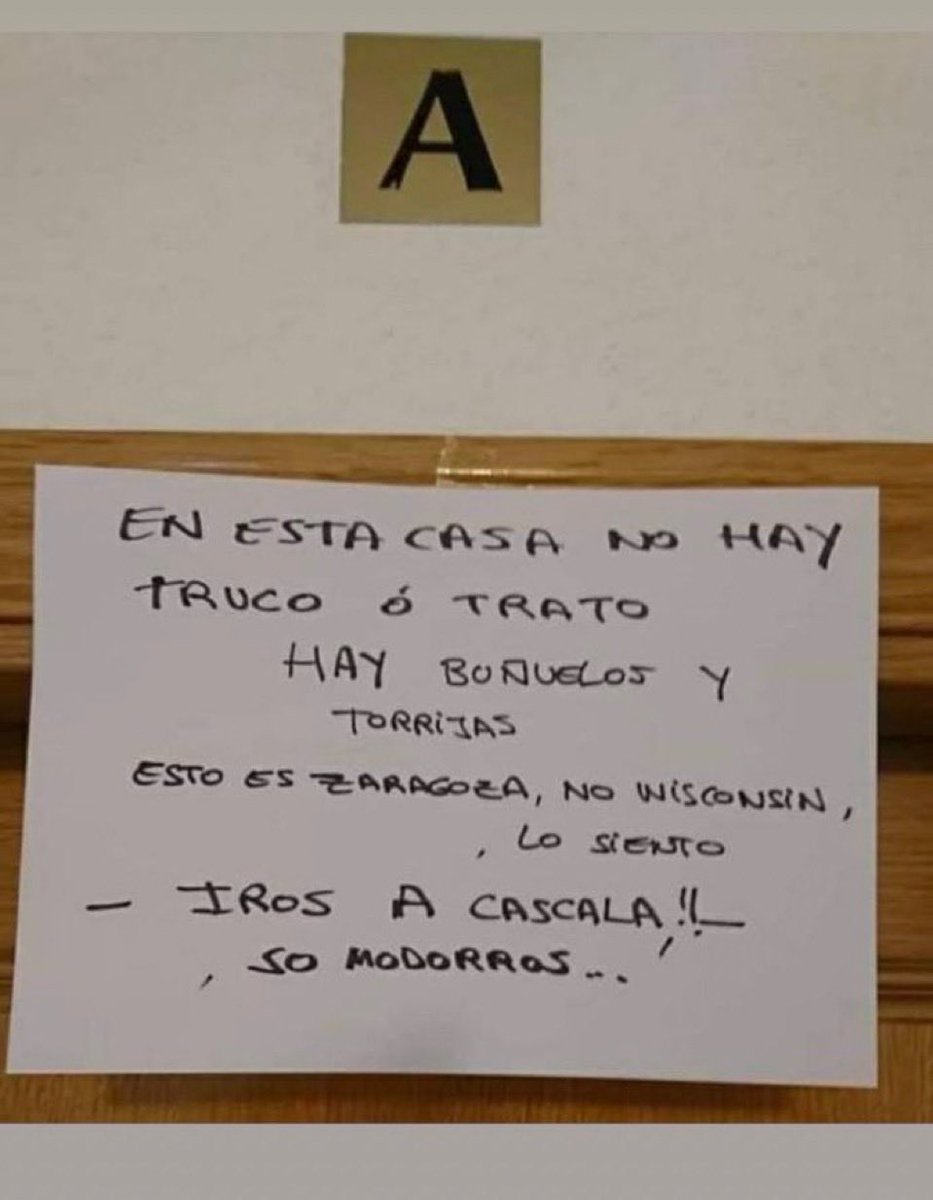 A
EN ESTA CASA NO HAY
TRUCO Ó TRATO
HAY BUÑUELOS Y
TORRIJAS
ESTO ES ZARAGOZA, NO WISCONSIN,
, LO SIENTO
- IROS A CASCALA,!!-
, SO MODORROS...